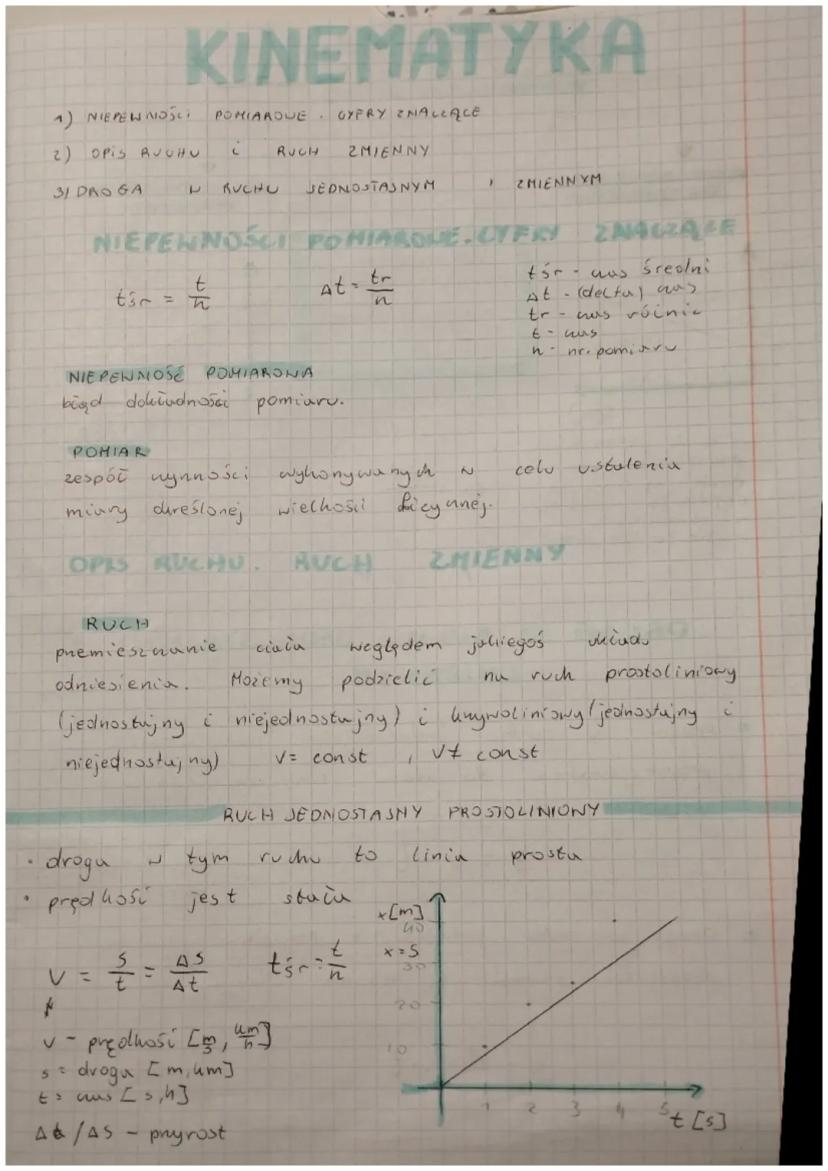 KINEMATYKA
1) NIEPEWNOŚCI POMIAROWE. CYFRY ZNACZĄCE
2) OPIS RUCHU i RUCH ZMIENNY
3) DROGA W RUCHU JEDNOSTAJNYM, ZMIENNYM
NIEPEWNOŚCI POMIAROWE. CYFRY ZNACZĄCE
tśr = t/n Δt = tr/n
tśr - czas średni
Δt - (delta) czas
tr - czas różnic
t - czas
n - nr. pomiaru
NIEPEWNOŚĆ POMIAROWA
błąd dokładności pomiaru.
POMIAR
zespół czynności wykonywanych w celu ustalenia
miary określonej wielkości fizycznej.
OPIS RUCHU. RUCH ZMIENNY
RUCH
przemieszczanie ciała względem jakiegoś układu
odniesienia. Możemy podzielić na ruch prostoliniowy
(jednostajny i niejednostajny) i krzywoliniowy (jednostajny i
niejednostajny) V = const, V ≠ const
RUCH JEDNOSTAJNY PROSTOLINIOWY
• droga w tym ruchu to linia prosta
• prędkość jest stała
V = s/t = Δs/Δt tśr = t/n
v - prędkość [m/s, km/h]
s = droga [m, km]
t = czas [s, h]
Δt/Δs - przyrost
x [m]
40
x = s
30
20
10
1 2 3 4 5
t [s]